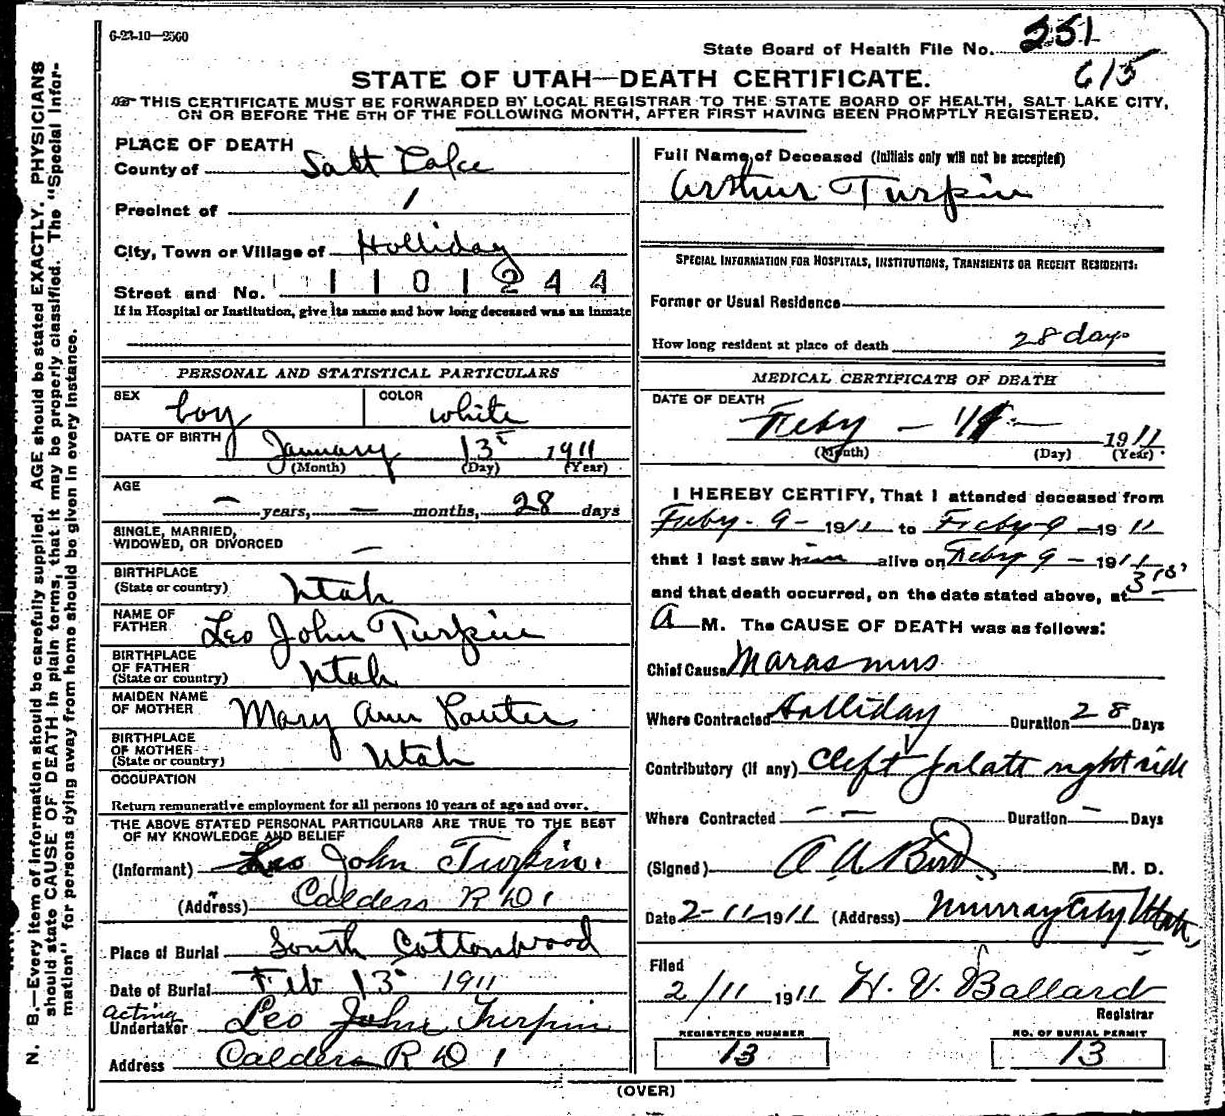 6-23-10—2560
State Board of Health File No. 251
615
STATE OF UTAH—DEATH CERTIFICATE.
THIS CERTIFICATE MUST BE FORWARDED BY LOCAL REGISTRAR TO THE STATE BOARD OF HEALTH, SALT LAKE CITY,
ON OR BEFORE THE 5TH OF THE FOLLOWING MONTH, AFTER FIRST HAVING BEEN PROMPTLY REGISTERED.
N. B.—Every item of information should be carefully supplied. AGE should be stated EXACTLY. PHYSICIANS
should state CAUSE OF DEATH in plain terms, that it may be properly classified. The "Special Infor-
mation" for persons dying away from home should be given in every instance.
PLACE OF DEATH
County of Salt Lake
Precinct of 1
City, Town or Village of Holliday
Street and No. 1101244
If in Hospital or Institution, give its name and how long deceased was an inmate
PERSONAL AND STATISTICAL PARTICULARS
SEX boy COLOR white
DATE OF BIRTH January 13 1911
(Month) (Day) (Year)
AGE
— years, — months, 28 days
SINGLE, MARRIED,
WIDOWED, OR DIVORCED —
BIRTHPLACE
(State or country) Utah
NAME OF
FATHER Leo John Turpin
BIRTHPLACE
OF FATHER
(State or country) Utah
MAIDEN NAME
OF MOTHER Mary Ann
BIRTHPLACE
OF MOTHER
(State or country) Utah
OCCUPATION
Return remunerative employment for all persons 10 years of age and over.
THE ABOVE STATED PERSONAL PARTICULARS ARE TRUE TO THE BEST
OF MY KNOWLEDGE AND BELIEF
(Informant) Leo John Turpin.
(Address) Calders R D 1
Place of Burial South Cottonwood
Date of Burial Feb 13 1911
acting
Undertaker Leo John Turpin
Address Calders R D 1
Full Name of Deceased (Initials only will not be accepted)
Arthur Turpin
SPECIAL INFORMATION FOR HOSPITALS, INSTITUTIONS, TRANSIENTS OR RECENT RESIDENTS:
Former or Usual Residence
How long resident at place of death 28 days
MEDICAL CERTIFICATE OF DEATH
DATE OF DEATH
Feby — 11 — 1911
(Month) (Day) (Year)
I HEREBY CERTIFY, That I attended deceased from
Feby - 9 - 1911 to Feby - 9 - 1911
that I last saw him alive on Feby 9 - 1911
and that death occurred, on the date stated above, at 315
A M. The CAUSE OF DEATH was as follows:
Chief Cause Marasmus
Where Contracted Holliday Duration 28 Days
Contributory (if any) Cleft palate right side
Where Contracted — — Duration — Days
(Signed) M. D.
Date 2-11-1911 (Address) Murray City Utah,
Filed
2/11 1911 H. V. Ballard
Registrar
REGISTERED NUMBER
13
NO. OF BURIAL PERMIT
13
(OVER)